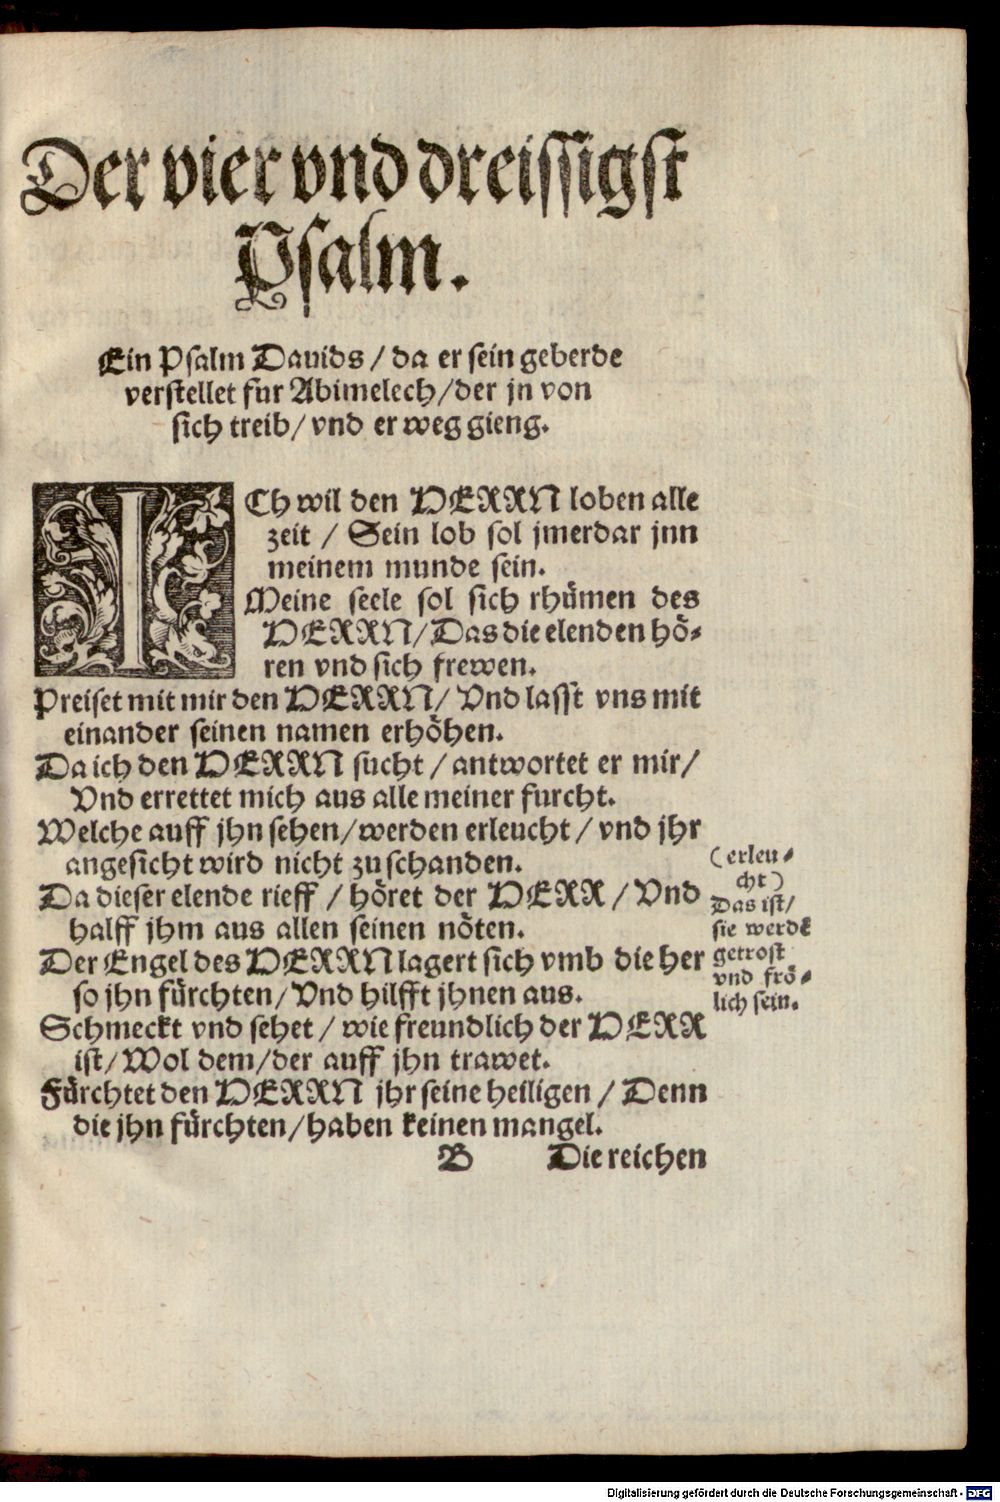 Der vier vnd dreissigst
Psalm.
Ein Psalm Dauids / da er sein geberde
verstellet fur Abimelech / der jn von
sich treib / vnd er weg gieng.
ICh wil den HERRN loben alle
zeit / Sein lob sol jmerdar jnn
meinem munde sein.
Meine seele sol sich rhümen des
HERRN / Das die elenden hö-
ren vnd sich frewen.
Preiset mit mir den HERRN / Vnd lasst vns mit
einander seinen namen erhöhen.
Da ich den HERRN sucht / antwortet er mir /
Vnd errettet mich aus alle meiner furcht.
Welche auff jhn sehen / werden erleucht / vnd jhr
angesicht wird nicht zu schanden.
Da dieser elende rieff / höret der HERR / Vnd
halff jhm aus allen seinen nöten.
Der Engel des HERRN lagert sich vmb die her
so jhn fürchten / Vnd hilfft jhnen aus.
Schmeckt vnd sehet / wie freundlich der HERR
ist / Wol dem / der auff jhn trawet.
Fürchtet den HERRN jhr seine heiligen / Denn
die jhn fürchten / haben keinen mangel.
B Die reichen
(erleu-
cht)
Das ist /
sie werdē
getrost
vnd frö-
lich sein.
Digitalisierung gefördert durch die Deutsche Forschungsgemeinschaft - DFG